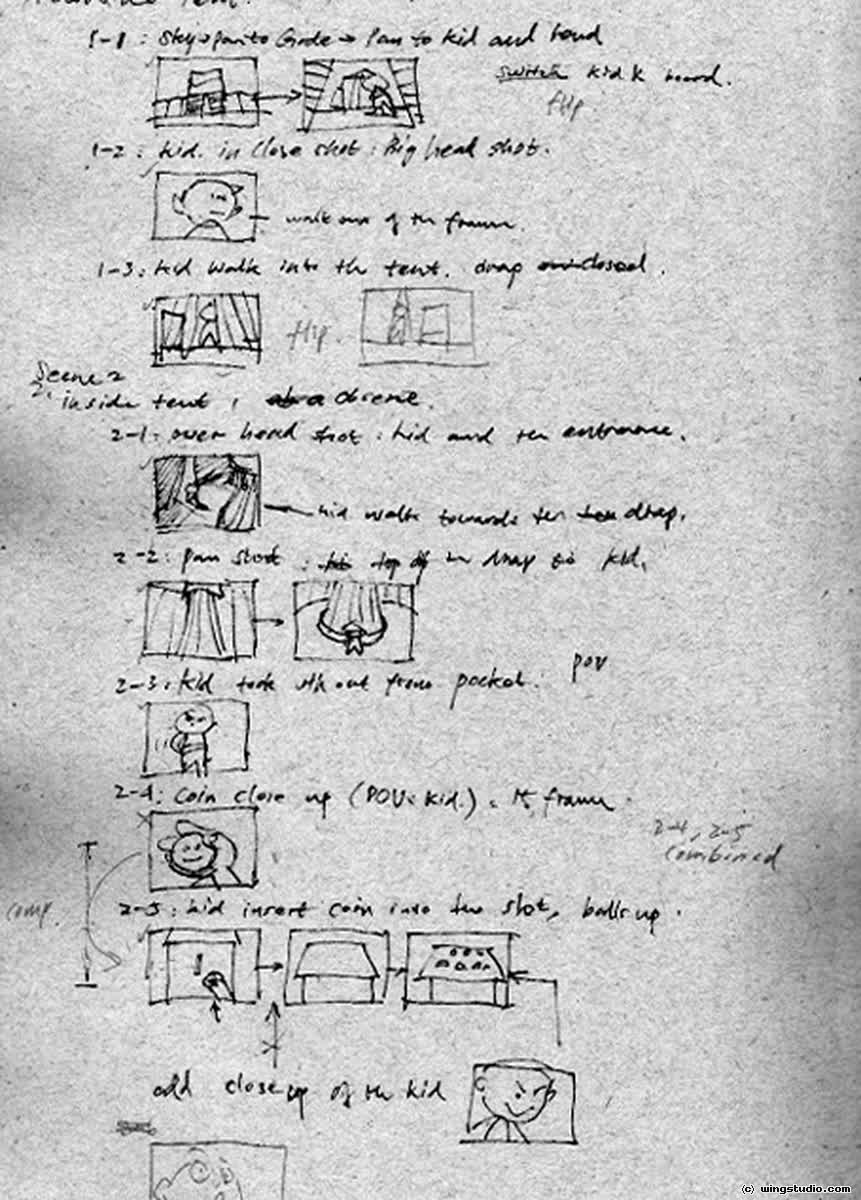 1-1 : Sky → Pan to Grade → Pan to kid and board
switch kid & board.
flip
1-2 : kid. in close shot : Big head shot.
walk out of the frame.
1-3 : kid walk into the tent. drap closed.
flip.
Scene 2
inside tent,
2-1 : over head shot : kid and the entrance.
kid walk towards the drap.
2-2 : Pan shot : top of the drap to kid.
2-3 : kid took out from pocket. POV
2-4 : Coin close up (POV: kid.) frame
2-4, 2-5
combined
comp.
2-5 : kid insert coin into the slot, balls up.
add close up of the kid
(c) wingstudio.com